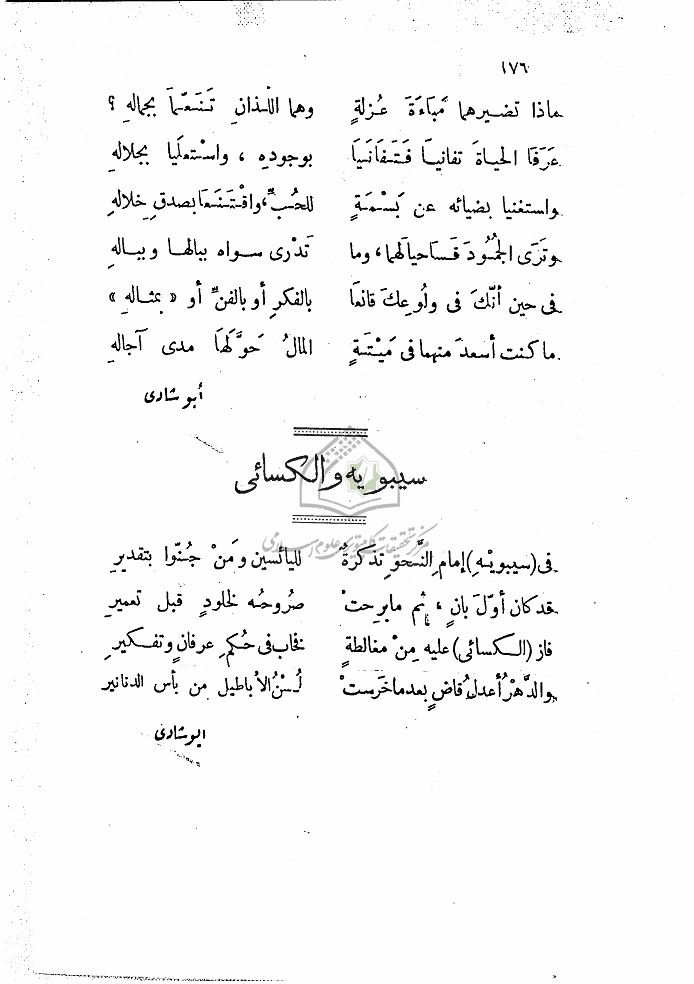 ١٧٦
ماذا تضيرهما مَبَاءَةَ عُزلةٍ وهما اللذانِ تَنَعَّما بجمالهِ ؟
عَرَفَا الحياةَ تفانياً فَتَفَانَيَا بوجودهِ ، واسْتعلَيا بجلالهِ
واستغنيا بضيائه عن بَسْمَةٍ للحُبِّ، واقْتَنَعَا بصدقِ خلالهِ
وتَرَى الجُمُودَ قَسَا حيالَهما، وما تَدْرى سواه ببالها وببالهِ
فى حين أنّكَ فى ولُوعِكَ قانعاً بالفكرِ أو بالفنِّ أو « بمثالهِ »
ما كنت أسعدَ منهما فى مَيْتَةٍ المالُ حَوَّلَهَا مدى آجالهِ
أبو شادى
سيبويه والكسائى
مركز تحقيقات كامپيوترى علوم اسلامى
فى (سيبويْهِ) إمامِ النَّحوِ تذكرةٌ لليائسين ومَنْ جُنّوا بتقديرِ
قد كان أوّلَ بانٍ ، ثم ما برحتْ صُروحُه للخلودِ قبل تعميرِ
فاز (الكسائى) عليه مِنْ مغالطةٍ فخاب فى حُكمِ عرفانٍ وتفكيرِ
والدَّهْرُ أعدلُ قاضٍ بعدما خَرستْ لُسْنُ الأباطيل من بأس الدنانيرِ
ابو شادى